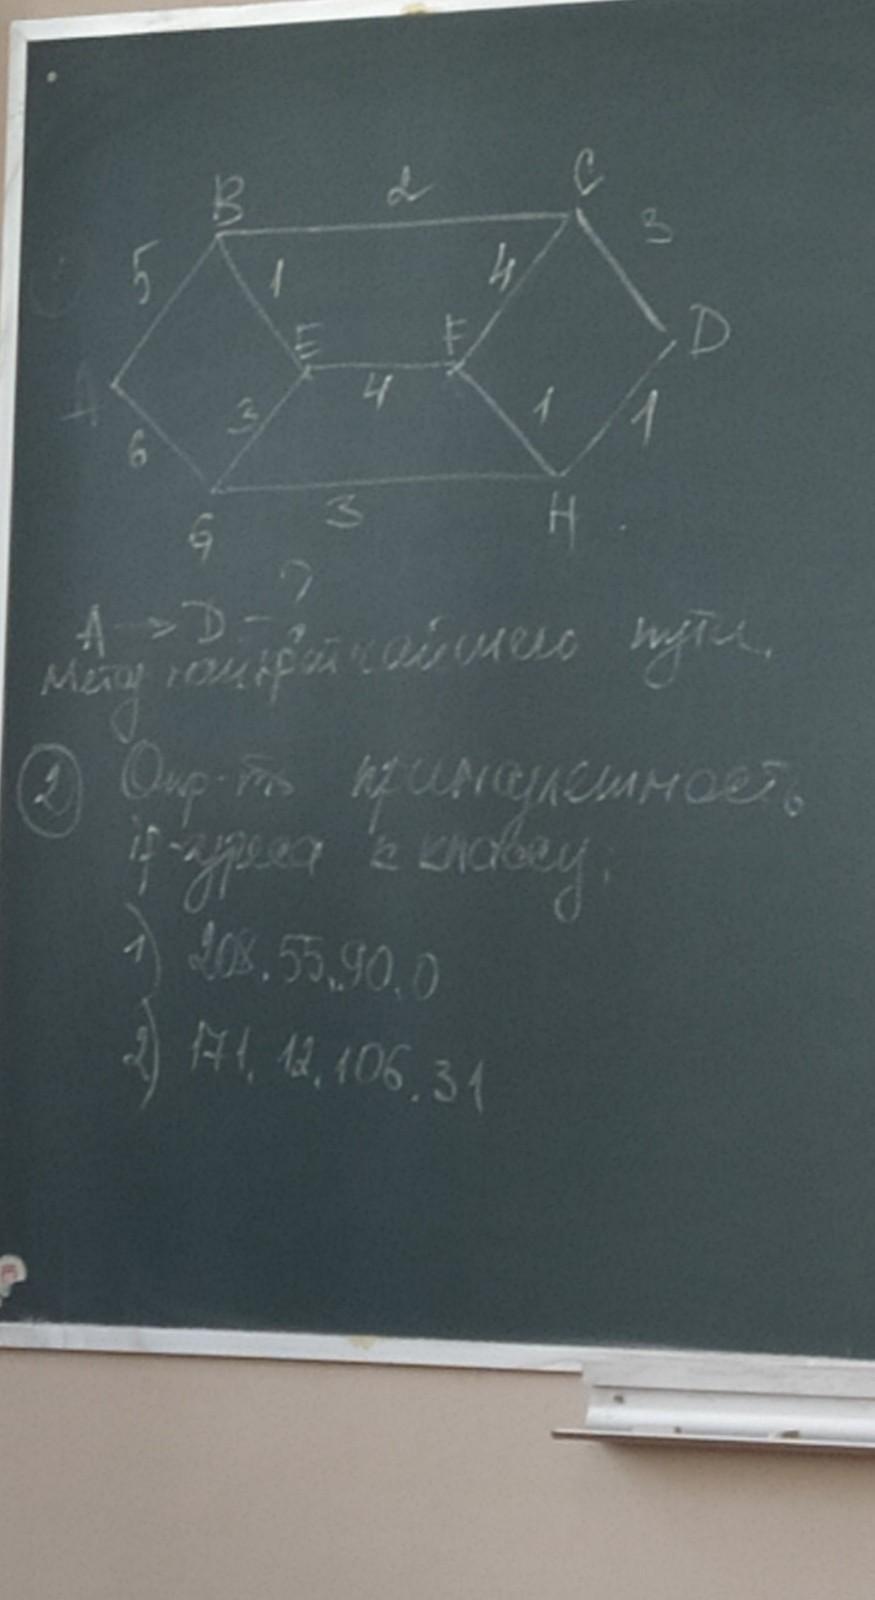 B 2 C
5 1 4 3
E F D
A 4
6 3 1 1
3
G H
A → D - ?
Метод наикратчайшего пути.
2 Опр-ть принадлежность
ip-адреса к классу:
1) 208.55.90.0
2) 171.12.106.31